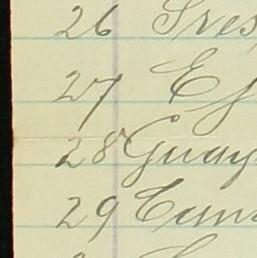 26 Tres
27 Ej
28 Guay
29 Cam